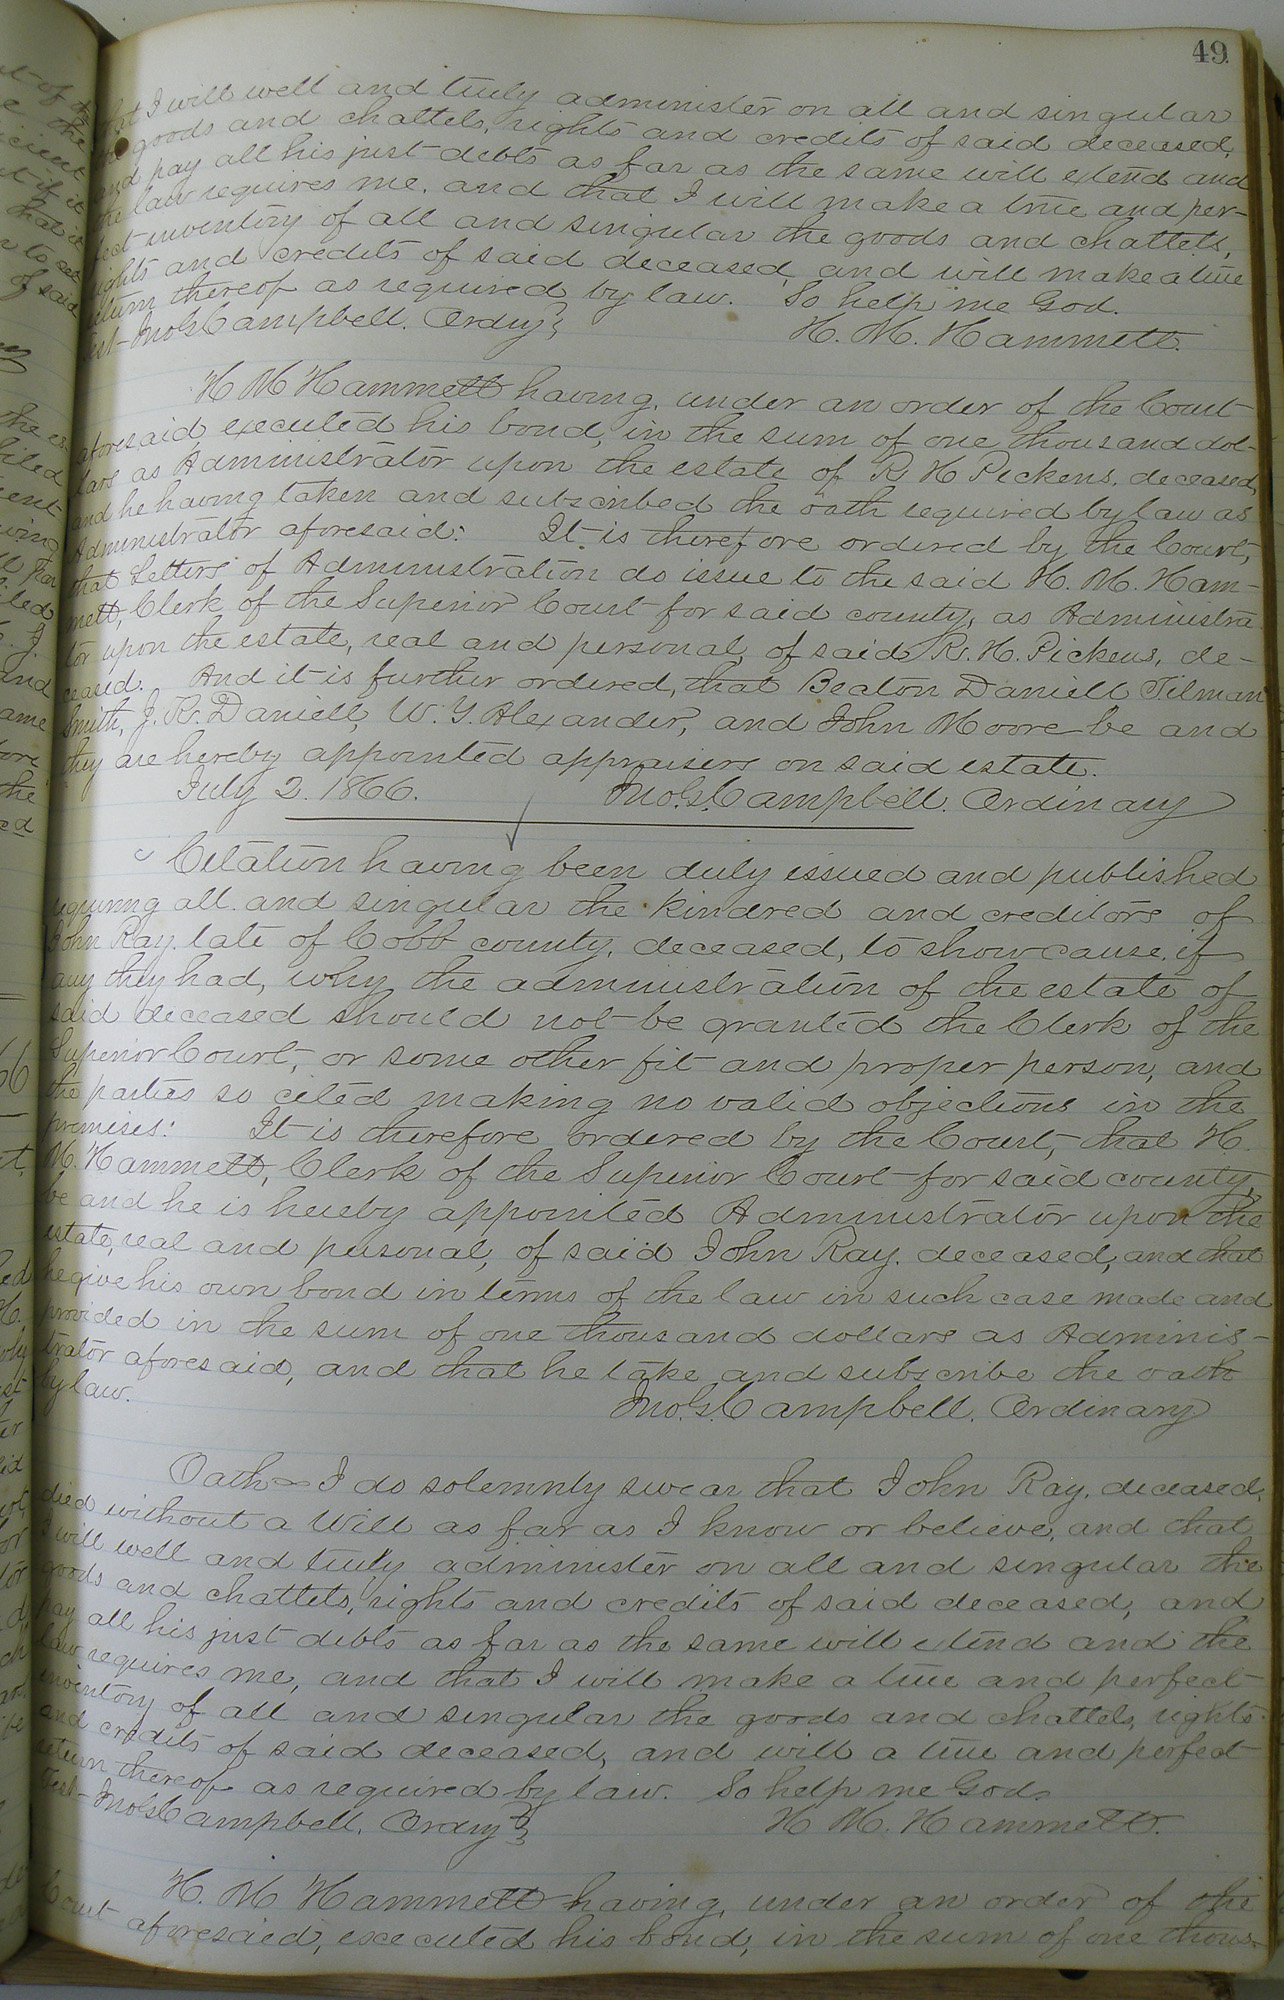 49
that I will well and truly administer on all and singular
the goods and chattels, rights and credits of said deceased,
and pay all his just debts as far as the same will extend and
the law requires me, and that I will make a true and per-
fect inventory of all and singular the goods and chattels,
rights and credits of said deceased, and will make a true
return thereof as required by law. So help me God.
Test- Jno. G. Campbell. Ord'y } H. M. Hammett.
H M Hammett having, under an order of the Court
aforesaid executed his bond, in the sum of one thousand dol-
lars as Administrator upon the estate of R H Pickens, deceased,
and he having taken and subscribed the oath required by law as
Administrator aforesaid: It is therefore ordered by the Court,
that Letters of Administration do issue to the said H. M. Ham-
mett, Clerk of the Superior Court for said county, as Administra
tor upon the estate, real and personal, of said R. H. Pickens, de-
ceased. And it is further ordered, that Beaton Daniell Tilman
Smith, J. R. Daniell, W. Y. Alexander, and John Moore be and
they are hereby appointed appraisers on said estate.
July 2. 1866. Jno. G. Campbell. Ordinary
Citation having been duly issued and published
requiring all and singular the kindred and creditors of
John Ray, late of Cobb county, deceased, to show cause, if
any they had, why the administration of the estate of
said deceased should not be granted the Clerk of the
Superior Court, or some other fit and proper person, and
the parties so cited making no valid objections in the
premises: It is therefore ordered by the Court, that H.
M. Hammett, Clerk of the Superior Court for said county,
be and he is hereby appointed Administrator upon the
estate, real and personal, of said John Ray, deceased, and that
he give his own bond in terms of the law in such case made and
provided in the sum of one thousand dollars as Adminis-
trator aforesaid, and that he take and subscribe the oath
by law. Jno. G. Campbell, Ordinary
Oath- I do solemnly swear that John Ray, deceased,
died without a Will as far as I know or believe, and that
I will well and truly administer on all and singular the
goods and chattels, rights and credits of said deceased, and
pay all his just debts as far as the same will extend and the
law requires me, and that I will make a true and perfect
inventory of all and singular the goods and chattels, rights
and credits of said deceased, and will a true and perfect
return thereof as required by law. So help me God.
Test- Jno. G. Campbell, Ord'y } H M. Hammett.
H. M Hammett having, under an order of the
Court aforesaid, executed his bond, in the sum of one thous-